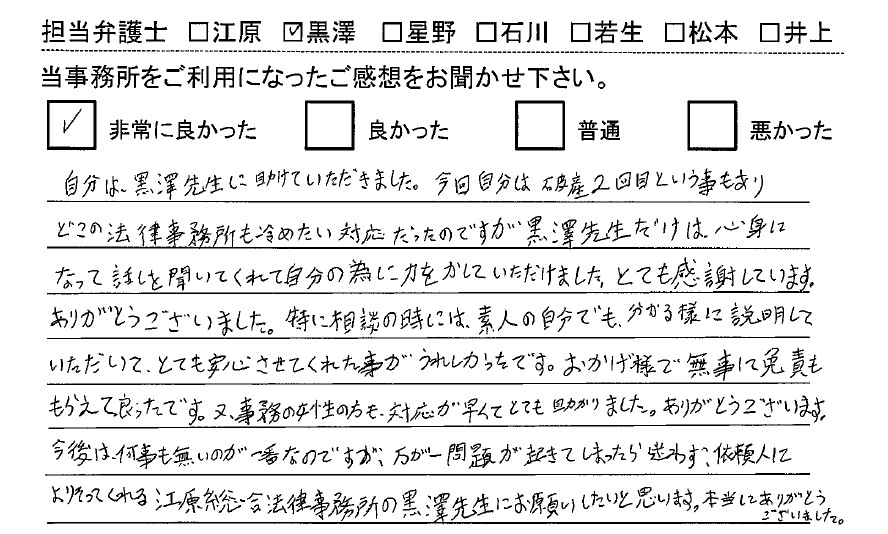 担当弁護士 □江原 ☑黒澤 □星野 □石川 □若生 □松本 □井上
当事務所をご利用になったご感想をお聞かせ下さい。
☑ 非常に良かった □ 良かった □ 普通 □ 悪かった
自分は、黒澤先生に助けていただきました。今回自分は破産2回目という事もあり
どこの法律事務所も冷めたい対応だったのですが黒澤先生だけは、心身に
なって話しを聞いてくれて自分の為に力をかしていただけました。とても感謝しています。
ありがとうございました。特に相談の時には、素人の自分でも、分かる様に説明して
いただいて、とても安心させてくれた事がうれしかったです。おかげ様で無事に免責も
もらえて良ったです。又、事務の女性の方も、対応が早くてとても助かりました。ありがとうございます。
今後は、何事も無いのが一番なのですが、万が一問題が起きてしまったら迷わず、依頼人に
よりそってくれる江原総合法律事務所の黒澤先生にお願いしたいと思います。本当にありがとう
ございました。